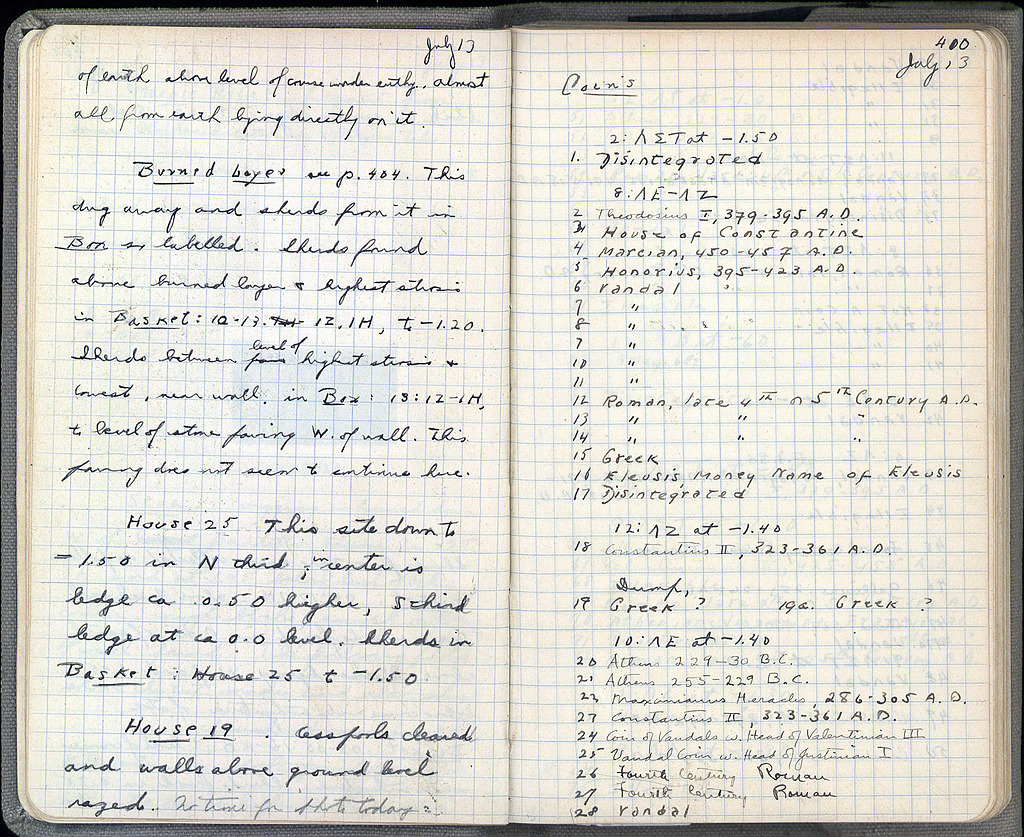 July 13
of earth above level of course under earthy, almost
all from earth lying directly on it.
Burned Layer see p. 404. This
dug away and sherds from it in
Box so labelled. Sherds found
above burned layer & highest strosis
in Basket: 12-13. 12, 1H, to -1.20.
Sherds between level of highest strosis &
lowest, near wall, in Box: 13: 12-1H,
to level of stone paving W. of wall. This
paving does not seem to continue here.
House 25 This site down to
-1.50 in N third, in center is
ledge ca 0.50 higher, S third
ledge at ca 0.0 level. Sherds in
Basket: House 25 to -1.50
House 19. Cesspools cleared
and walls above ground level
razed. No time for shots today =
400
July 13
Coins
2: ΛΣΤ at -1.50
1. Disintegrated
8: ΛΕ-ΛΖ
2 Theodosius I, 379-395 A.D.
3 House of Constantine
4 Marcian, 450-457 A.D.
5 Honorius, 395-423 A.D.
6 Vandal
7 "
8 "
9 "
10 "
11 "
12 Roman, late 4TH or 5TH Century A.D.
13 " " "
14 " " "
15 Greek
16 Eleusis, Money Name of Eleusis
17 Disintegrated
12: ΛΖ at -1.40
18 Constantius II, 323-361 A.D.
Dump,
19 Greek ? 19a. Greek ?
10: ΛΕ at -1.40
20 Athens 229-30 B.C.
21 Athens 255-229 B.C.
22 Maximianus Heracles, 286-305 A.D.
23 Constantius II, 323-361 A.D.
24 Coin of Vandals w. Head of Valentinian III
25 Vandal Coin w. Head of Justinian I
26 Fourth Century Roman
27 Fourth Century Roman
28 Vandal